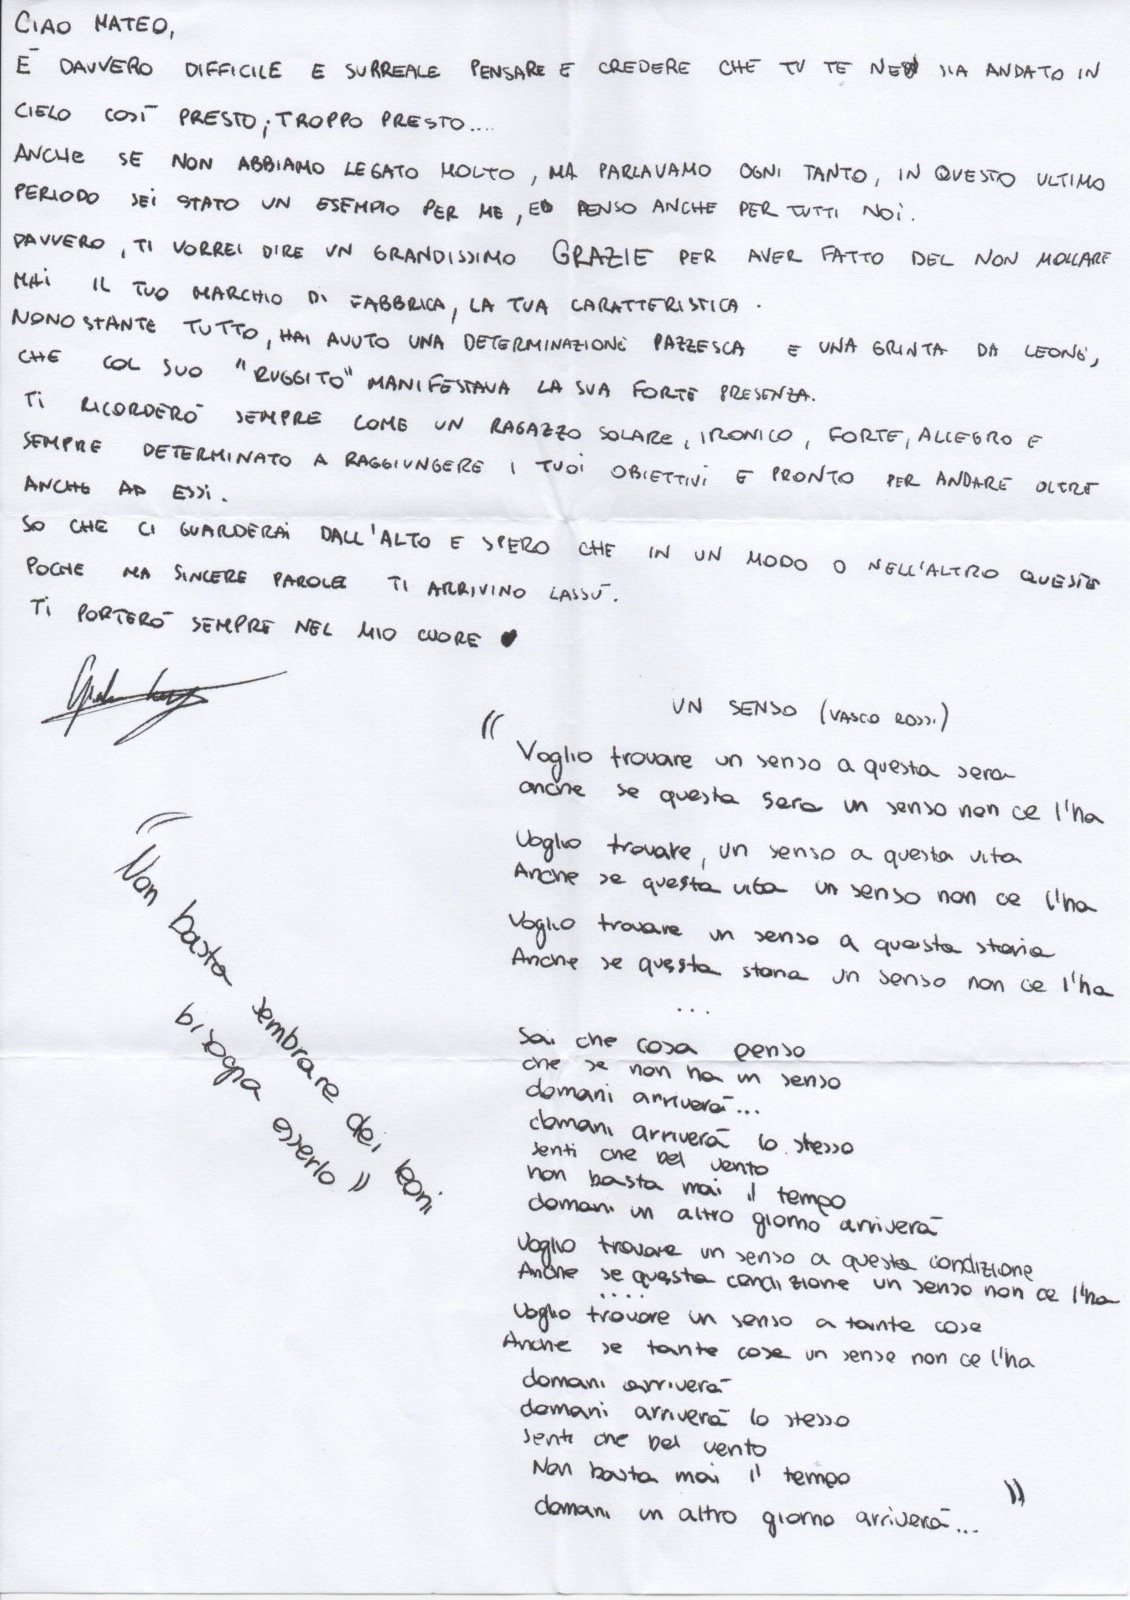 CIAO MATEO,
È DAVVERO DIFFICILE E SURREALE PENSARE E CREDERE CHE TU TE NE SIA ANDATO IN
CIELO COSÌ PRESTO; TROPPO PRESTO....
ANCHE SE NON ABBIAMO LEGATO MOLTO, MA PARLAVAMO OGNI TANTO, IN QUESTO ULTIMO
PERIODO SEI STATO UN ESEMPIO PER ME, E PENSO ANCHE PER TUTTI NOI.
DAVVERO, TI VORREI DIRE UN GRANDISSIMO GRAZIE PER AVER FATTO DEL NON MOLLARE
MAI IL TUO MARCHIO DI FABBRICA, LA TUA CARATTERISTICA.
NONOSTANTE TUTTO, HAI AVUTO UNA DETERMINAZIONE PAZZESCA E UNA GRINTA DA LEONE,
CHE COL SUO "RUGGITO" MANIFESTAVA LA SUA FORTE PRESENZA.
TI RICORDERÒ SEMPRE COME UN RAGAZZO SOLARE, IRONICO, FORTE, ALLEGRO E
SEMPRE DETERMINATO A RAGGIUNGERE I TUOI OBIETTIVI E PRONTO PER ANDARE OLTRE
ANCHE AD ESSI.
SO CHE CI GUARDERAI DALL'ALTO E SPERO CHE IN UN MODO O NELL'ALTRO QUESTE
POCHE MA SINCERE PAROLE TI ARRIVINO LASSÙ.
TI PORTERÒ SEMPRE NEL MIO CUORE ♥
UN SENSO (VASCO ROSSI)
"Voglio trovare un senso a questa sera
anche se questa sera un senso non ce l'ha
Voglio trovare, un senso a questa vita
Anche se questa vita un senso non ce l'ha
Voglio trovare un senso a questa storia
Anche se questa storia un senso non ce l'ha
...
Sai che cosa penso
che se non ha un senso
domani arriverà...
domani arriverà lo stesso
senti che bel vento
non basta mai il tempo
domani un altro giorno arriverà
Voglio trovare un senso a questa condizione
Anche se questa condizione un senso non ce l'ha
....
Voglio trovare un senso a tante cose
Anche se tante cose un senso non ce l'ha
domani arriverà
domani arriverà lo stesso
senti che bel vento
Non basta mai il tempo
domani un altro giorno arriverà..."
"Non basta sembrare dei leoni
bisogna esserlo"